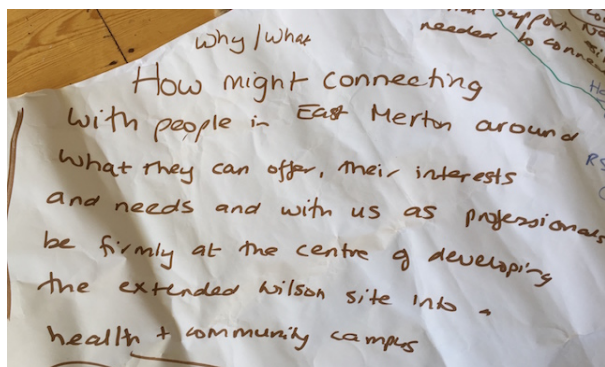 Why / What
How might connecting
with people in East Merton around
what they can offer, their interests
and needs and with us as professionals
be firmly at the centre of developing
the extended Wilson site into a
health + community campus
support
needed to conne
RS